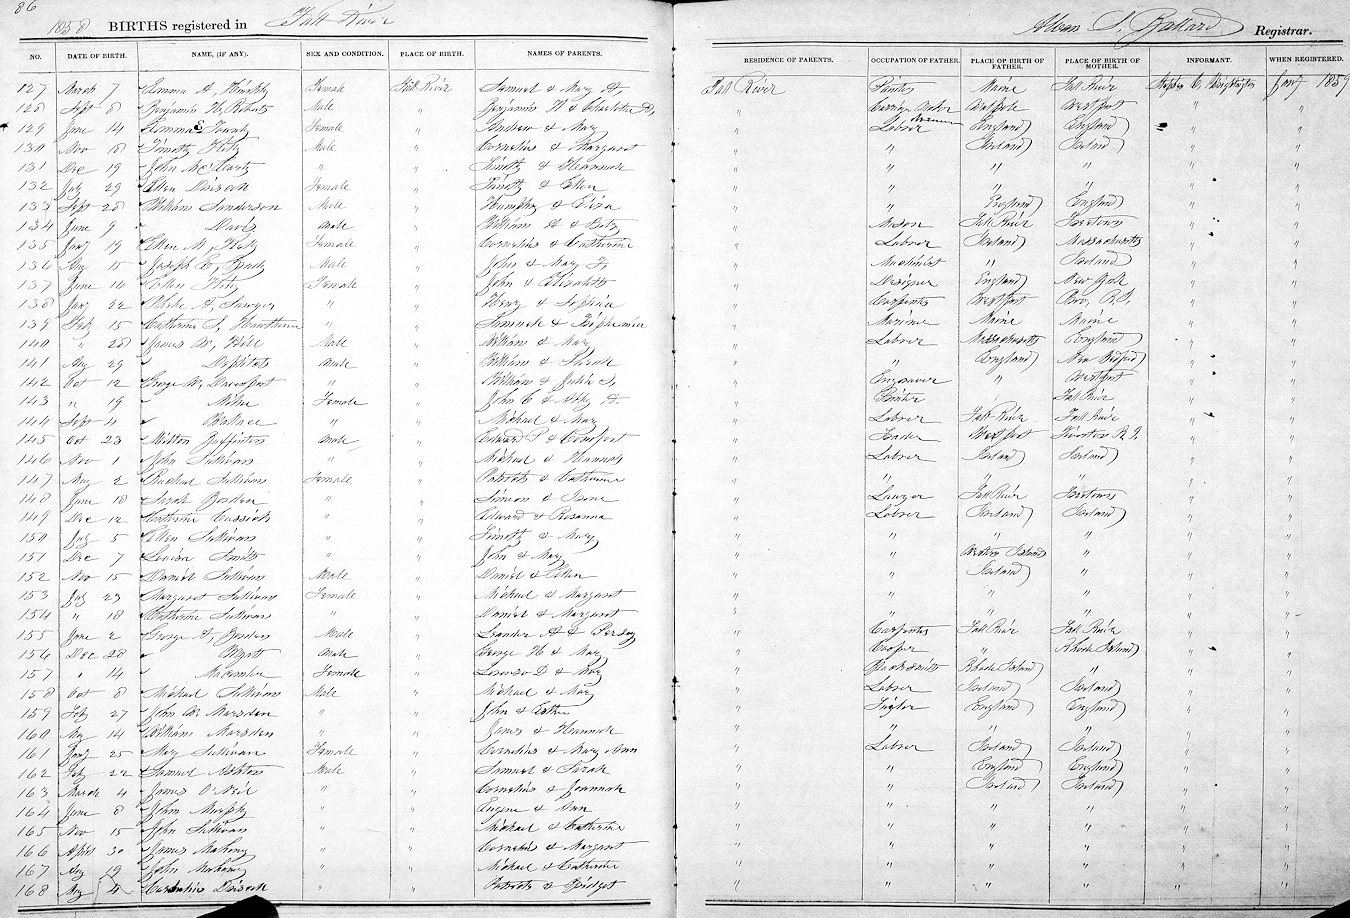 86
1858 BIRTHS registered in Fall River
Alvan S. Ballard Registrar.
NO. DATE OF BIRTH. NAME, (IF ANY). SEX AND CONDITION. PLACE OF BIRTH. NAMES OF PARENTS. RESIDENCE OF PARENTS. OCCUPATION OF FATHER. PLACE OF BIRTH OF FATHER. PLACE OF BIRTH OF MOTHER. INFORMANT. WHEN REGISTERED.
127 March 7 Emma A, Female Fall River Samuel & Mary A. Fall River Painter Maine Fall River Jany 1859
128 Sept 8 Benjamin H, Roberts Male " Benjamin H & Charlotte A, " Carriage Maker Walpole Westport " "
129 June 14 Emma E Female " Andrew & Mary " Laborer England England " "
130 Nov 18 Timothy Male " Cornelius & Margaret " " Ireland Ireland " "
131 Dec 19 John McCarty " " Timothy & Hannah " " " " " "
132 July 29 Ellen Driscoll Female " Timothy & Ellen " " " " " "
133 Sept 28 William Sanderson Male " Humphry & Eliza " " England England " "
134 June 9 " Davis Male " William A & Betsy " Mason Fall River Freetown " "
135 Jany 19 Ellen M, Female " Cornelius & Catherine " Laborer Ireland Massachusetts " "
136 Aug 15 Joseph E, Male " John & Mary " Machinist " Ireland " "
137 June 16 Ellen Female " John & Elizabeth " Designer England New York " "
138 Jany 22 Phebe A, Sawyer " " Henry & Sophia " Carpenter Westport Prov, R.I. " "
139 Feby 15 Catherine S, Hawthorne " " Samuel & Euphemia " Mariner Maine Maine " "
140 " 28 James W, Hill Male " William & Mary " Laborer Massachusetts England " "
141 Aug 29 " Male " William & " " England New Bedford " "
142 Oct 12 George W, Davenport " " William & Julia S, " Engraver " Westport " "
143 " 19 " Milne Female " John C & Abby A. " Painter Fall River " "
144 Sept 4 " Wallace " " Michael & Mary " Laborer Fall River Fall River " "
145 Oct 23 Milton Male " Edward P & Comfort " Westport R.I. " "
146 Nov 1 John Sullivan " " Michael & Hannah " Laborer Ireland Ireland " "
147 May 2 Rachael Sullivan Female " Patrick & Catherine " " " " " "
148 June 18 Sarah Borden " " Simeon & Irene " Lawyer Fall River Freetown " "
149 Dec 12 Catherine Cusick " " Edward & Rosanna " Laborer Ireland Ireland " "
150 July 5 Ellen Sullivan " " Timothy & Mary " " " " " "
151 Dec 7 Louisa Smith " " John & Mary " Western Islands " " "
152 Nov 15 Daniel Sullivan Male " Daniel & Ellen " " Ireland " " "
153 July 23 Margaret Sullivan Female " Michael & Margaret " " " " " "
154 " 18 Catherine Sullivan " " Daniel & Margaret " " " " " "
155 June 2 George A, Borden Male " Leander A & " Carpenter Fall River Fall River " "
156 Dec 28 " Wyatt Male " George H & Mary " Cooper " Rhode Island " "
157 " 14 " Macomber Female " Lorenzo D & Mary " Blacksmith Rhode Island " " "
158 Oct 8 Michael Sullivan Male " Michael & Mary " Laborer Ireland Ireland " "
159 Feby 27 John W. Marsden " " John & Esther " Taylor England England " "
160 Aug 14 William Marsden " " James & Hannah " " " " " "
161 Jany 25 Mary Sullivan Female " Cornelius & Mary Ann " Laborer Ireland Ireland " "
162 Feby 22 Samuel Ashton Male " Samuel & Sarah " " England England " "
163 March 4 James O'Neil " " Cornelius & Joannah " " Ireland Ireland " "
164 June 8 John Murphy " " Eugene & Ann " " " " " "
165 Nov 15 John Sullivan " " Michael & Catherine " " " " " "
166 April 30 James Mahony " " Cornelius & Margaret " " " " " "
167 Aug 19 John Mahony " " Michael & Catherine " " " " " "
168 Aug 4 Cornelius Driscoll " " Patrick & Bridget " " " " " "